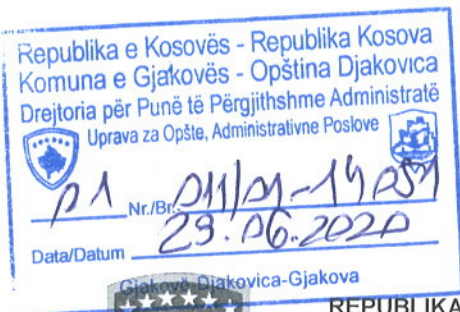 Republika e Kosovës - Republika Kosova
Komuna e Gjakovës - Opština Djakovica
Drejtoria për Punë të Përgjithshme Administratë
Uprava za Opšte, Administrativne Poslove
01 Nr./Br. 011/01-14051
Data/Datum 29.06.2020
Gjakovë-Djakovica-Gjakova
REPUBLIKA